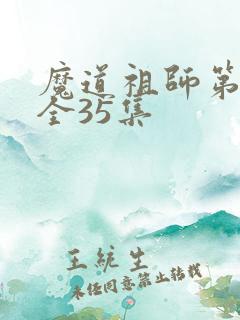 魔道祖師第
全35集
王統生
未经同意禁止转载